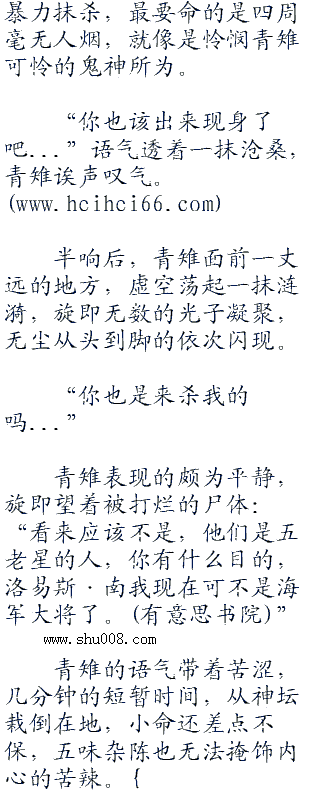 暴力抹杀，最要命的是四周
毫无人烟，就像是怜悯青雉
可怜的鬼神所为。
“你也该出来现身了
吧...”语气透着一抹沧桑，
青雉诶声叹气。
(www.hcihci66.com)
半响后，青雉面前一丈
远的地方，虚空荡起一抹涟
漪，旋即无数的光子凝聚，
无尘从头到脚的依次闪现。
“你也是来杀我的
吗...”
青雉表现的颇为平静，
旋即望着被打烂的尸体：
“看来应该不是，他们是五
老星的人，你有什么目的，
洛易斯·南我现在可不是海
军大将了。(有意思书院)”
www.shu008.com
青雉的语气带着苦涩，
几分钟的短暂时间，从神坛
栽倒在地，小命还差点不
保，五味杂陈也无法掩饰内
心的苦辣。{